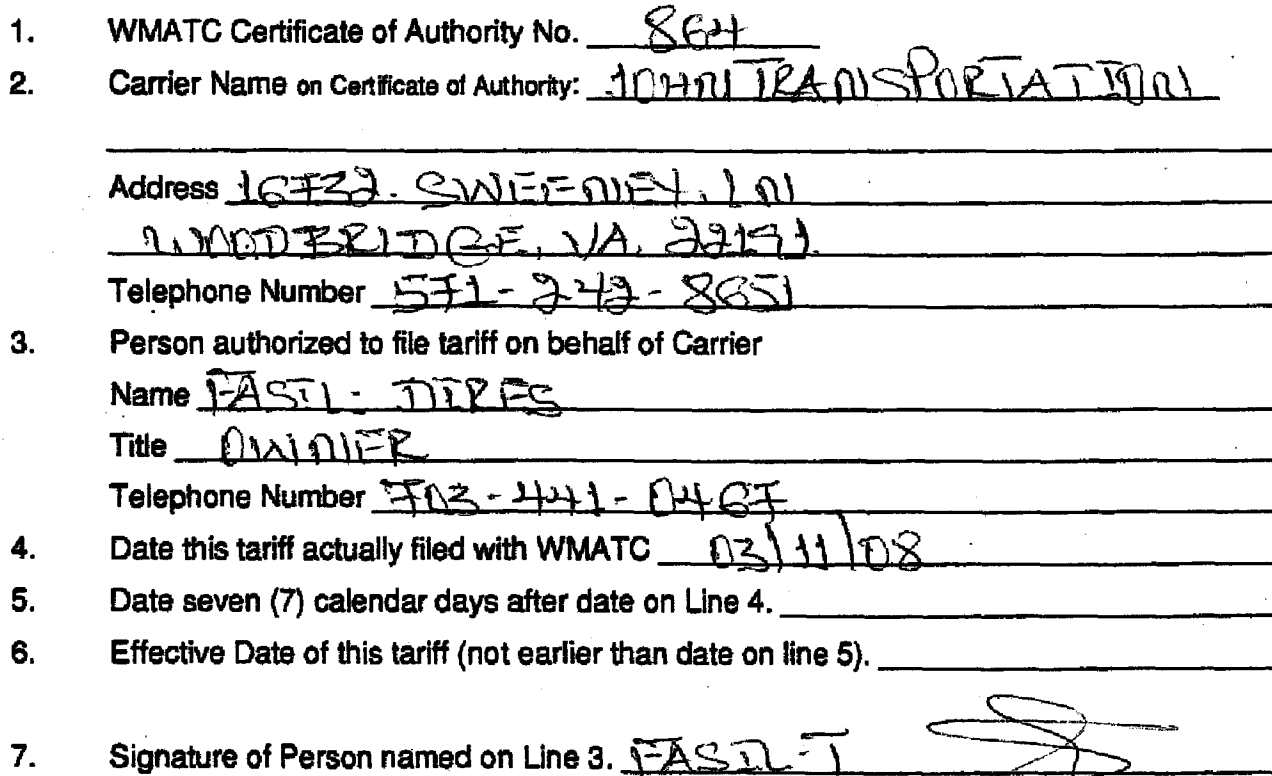 1. WMATC Certificate of Authority No. 864
2. Carrier Name on Certificate of Authority: JOHN TRANSPORTATION
Address 16732. SWEENEY. LN
WOODBRIDGE, VA. 22191.
Telephone Number 571-242-8651
3. Person authorized to file tariff on behalf of Carrier
Name FASIL - DIRES
Title OWNER
Telephone Number 703-441-0467
4. Date this tariff actually filed with WMATC 03/11/08
5. Date seven (7) calendar days after date on Line 4.
6. Effective Date of this tariff (not earlier than date on line 5).
7. Signature of Person named on Line 3. FASIL-T